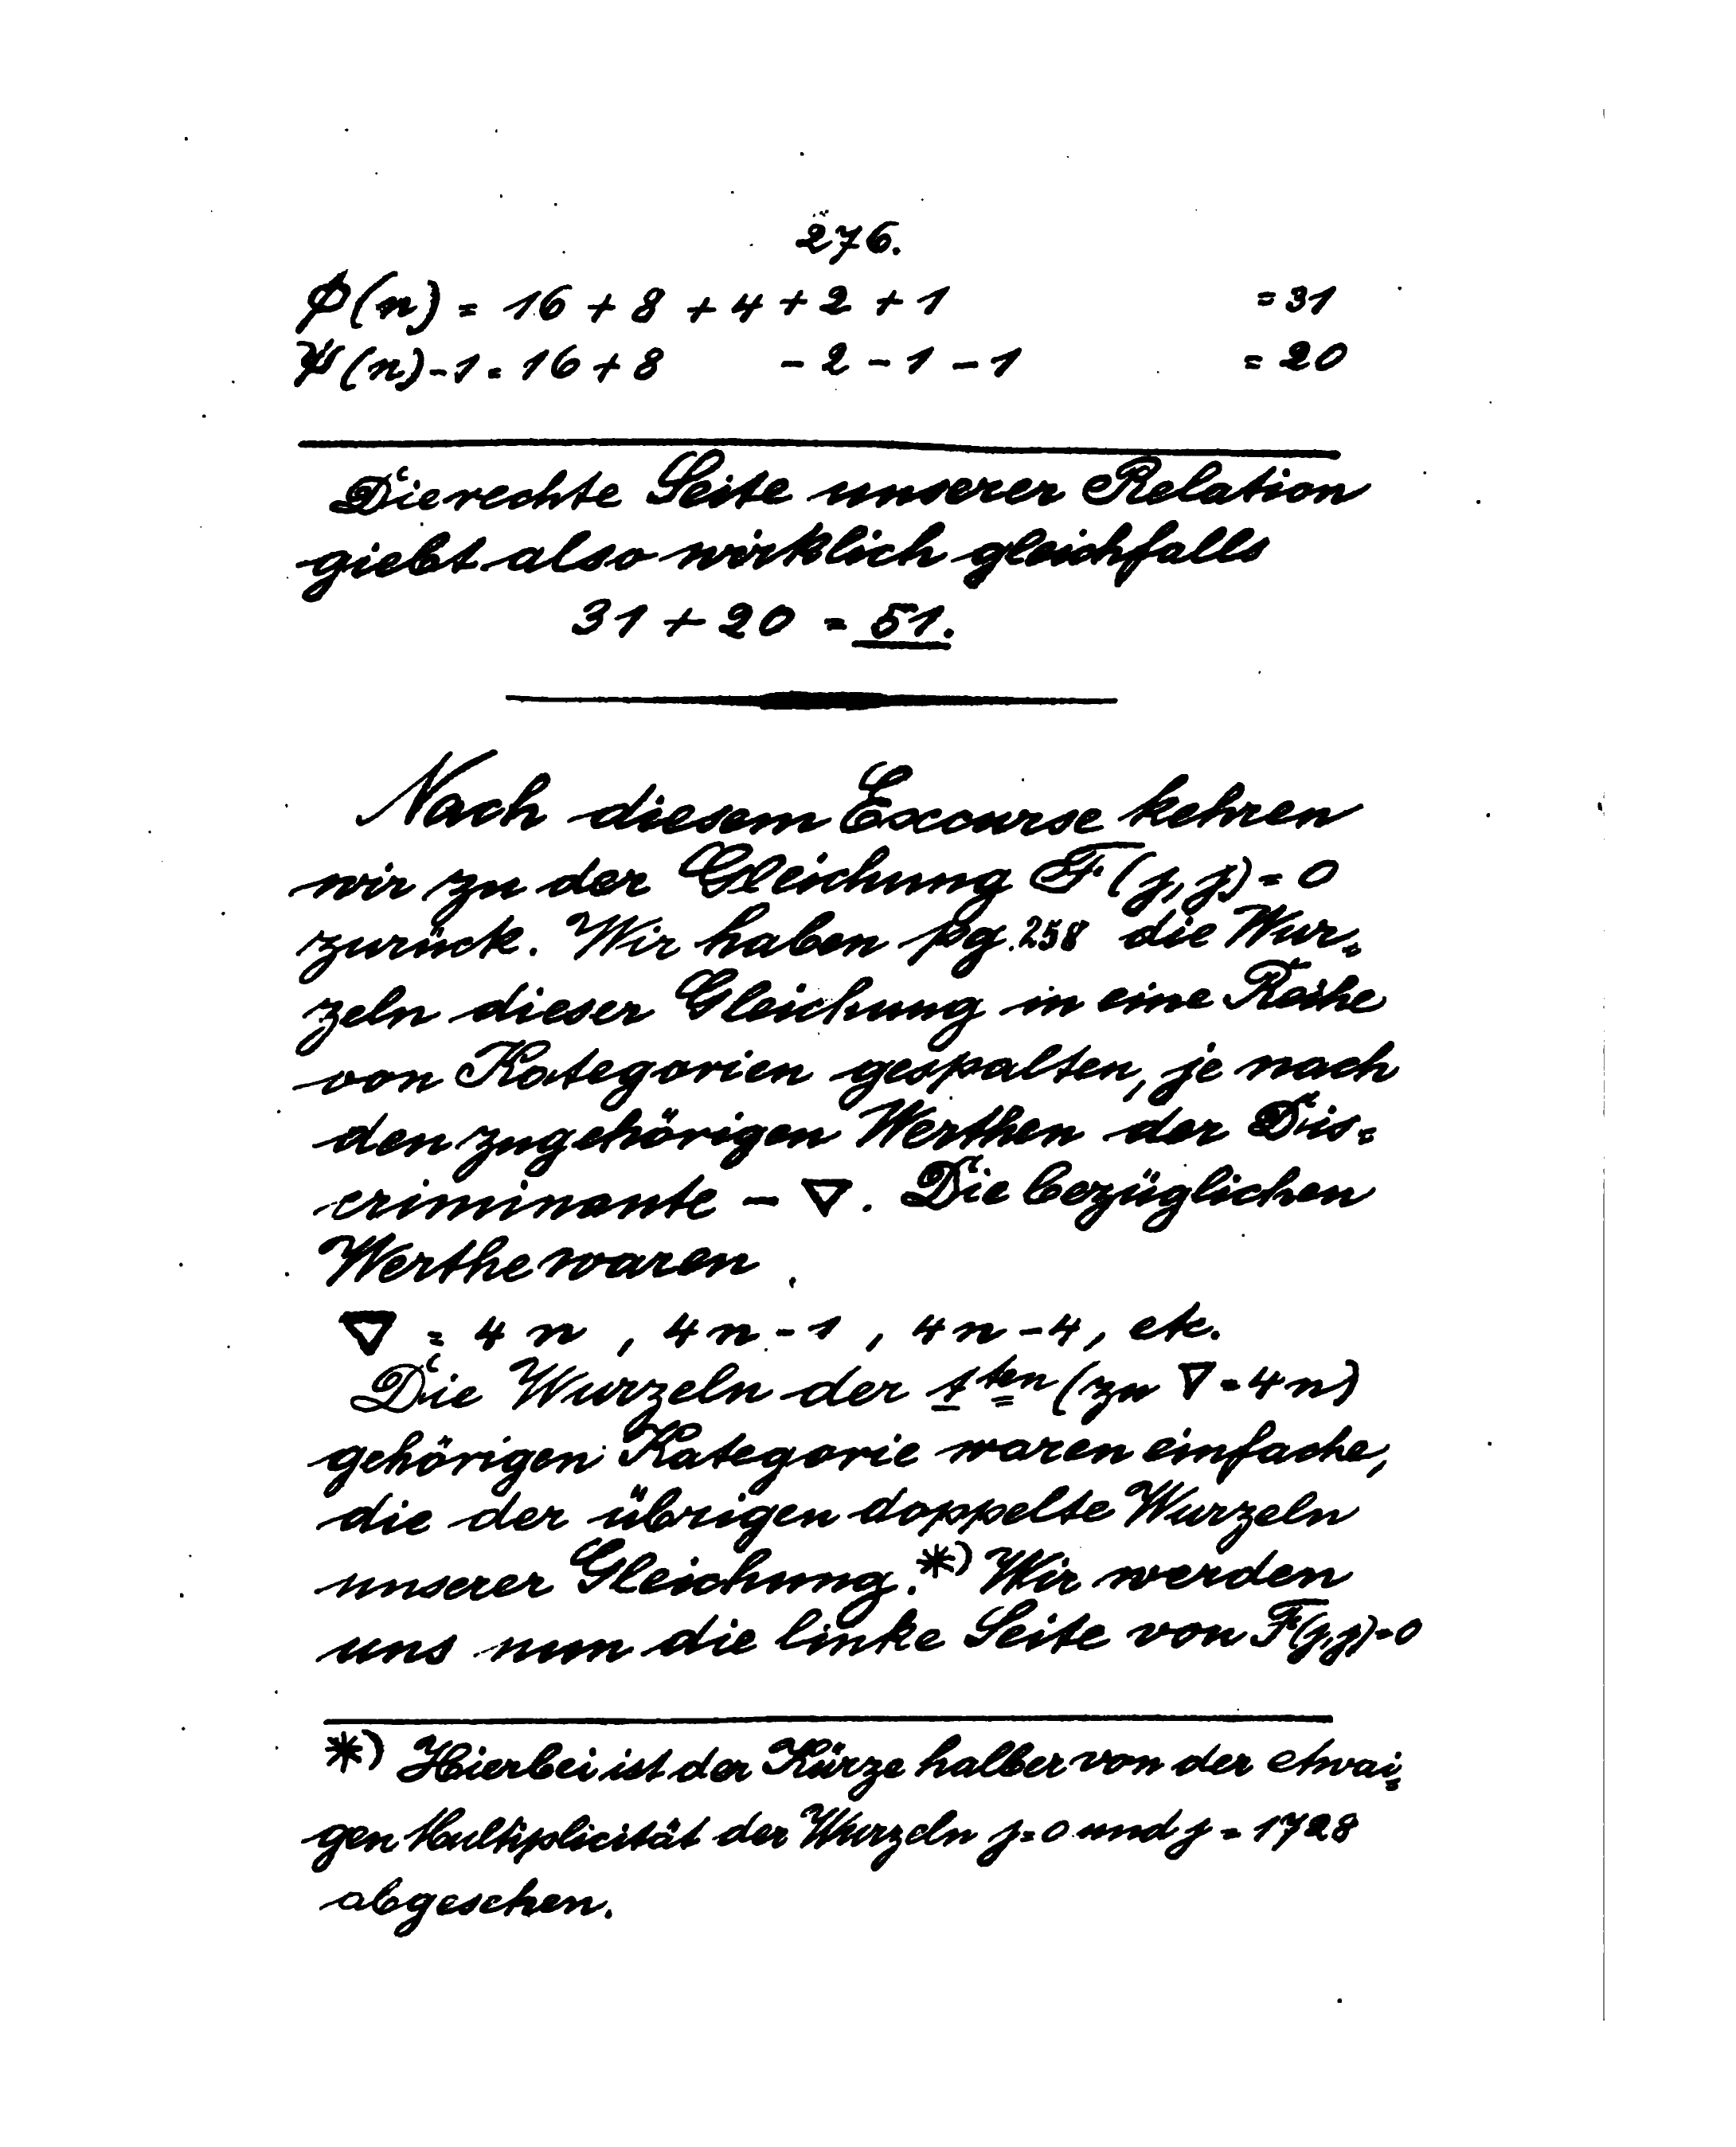 276.
Φ(n) = 16 + 8 + 4 + 2 + 1 = 31
Ψ(n) - 1 = 16 + 8 - 2 - 1 - 1 = 20
Die rechte Seite unserer Relation
giebt also wirklich gleichfalls
31 + 20 = 51.
Nach diesem Excurse kehren
wir zu der Gleichung F(j, j) = 0
zurück. Wir haben pg. 258 die Wur=
zeln dieser Gleichung in eine Reihe
von Kategorien gespalten, je nach
den zugehörigen Werthen der Dis=
criminante - ∇. Die bezüglichen
Werthe waren
∇ = 4n, 4n-1, 4n-4, etc.
Die Wurzeln der 1ten (zu ∇ = 4n)
gehörigen Kategorie waren einfache,
die der übrigen doppelte Wurzeln
unserer Gleichung.*) Wir werden
uns nun die linke Seite von F(j, j) = 0
*) Hierbei ist der Kürze halber von der etwai=
gen Multiplicität der Wurzeln j = 0 und j = 1728
abgesehen.